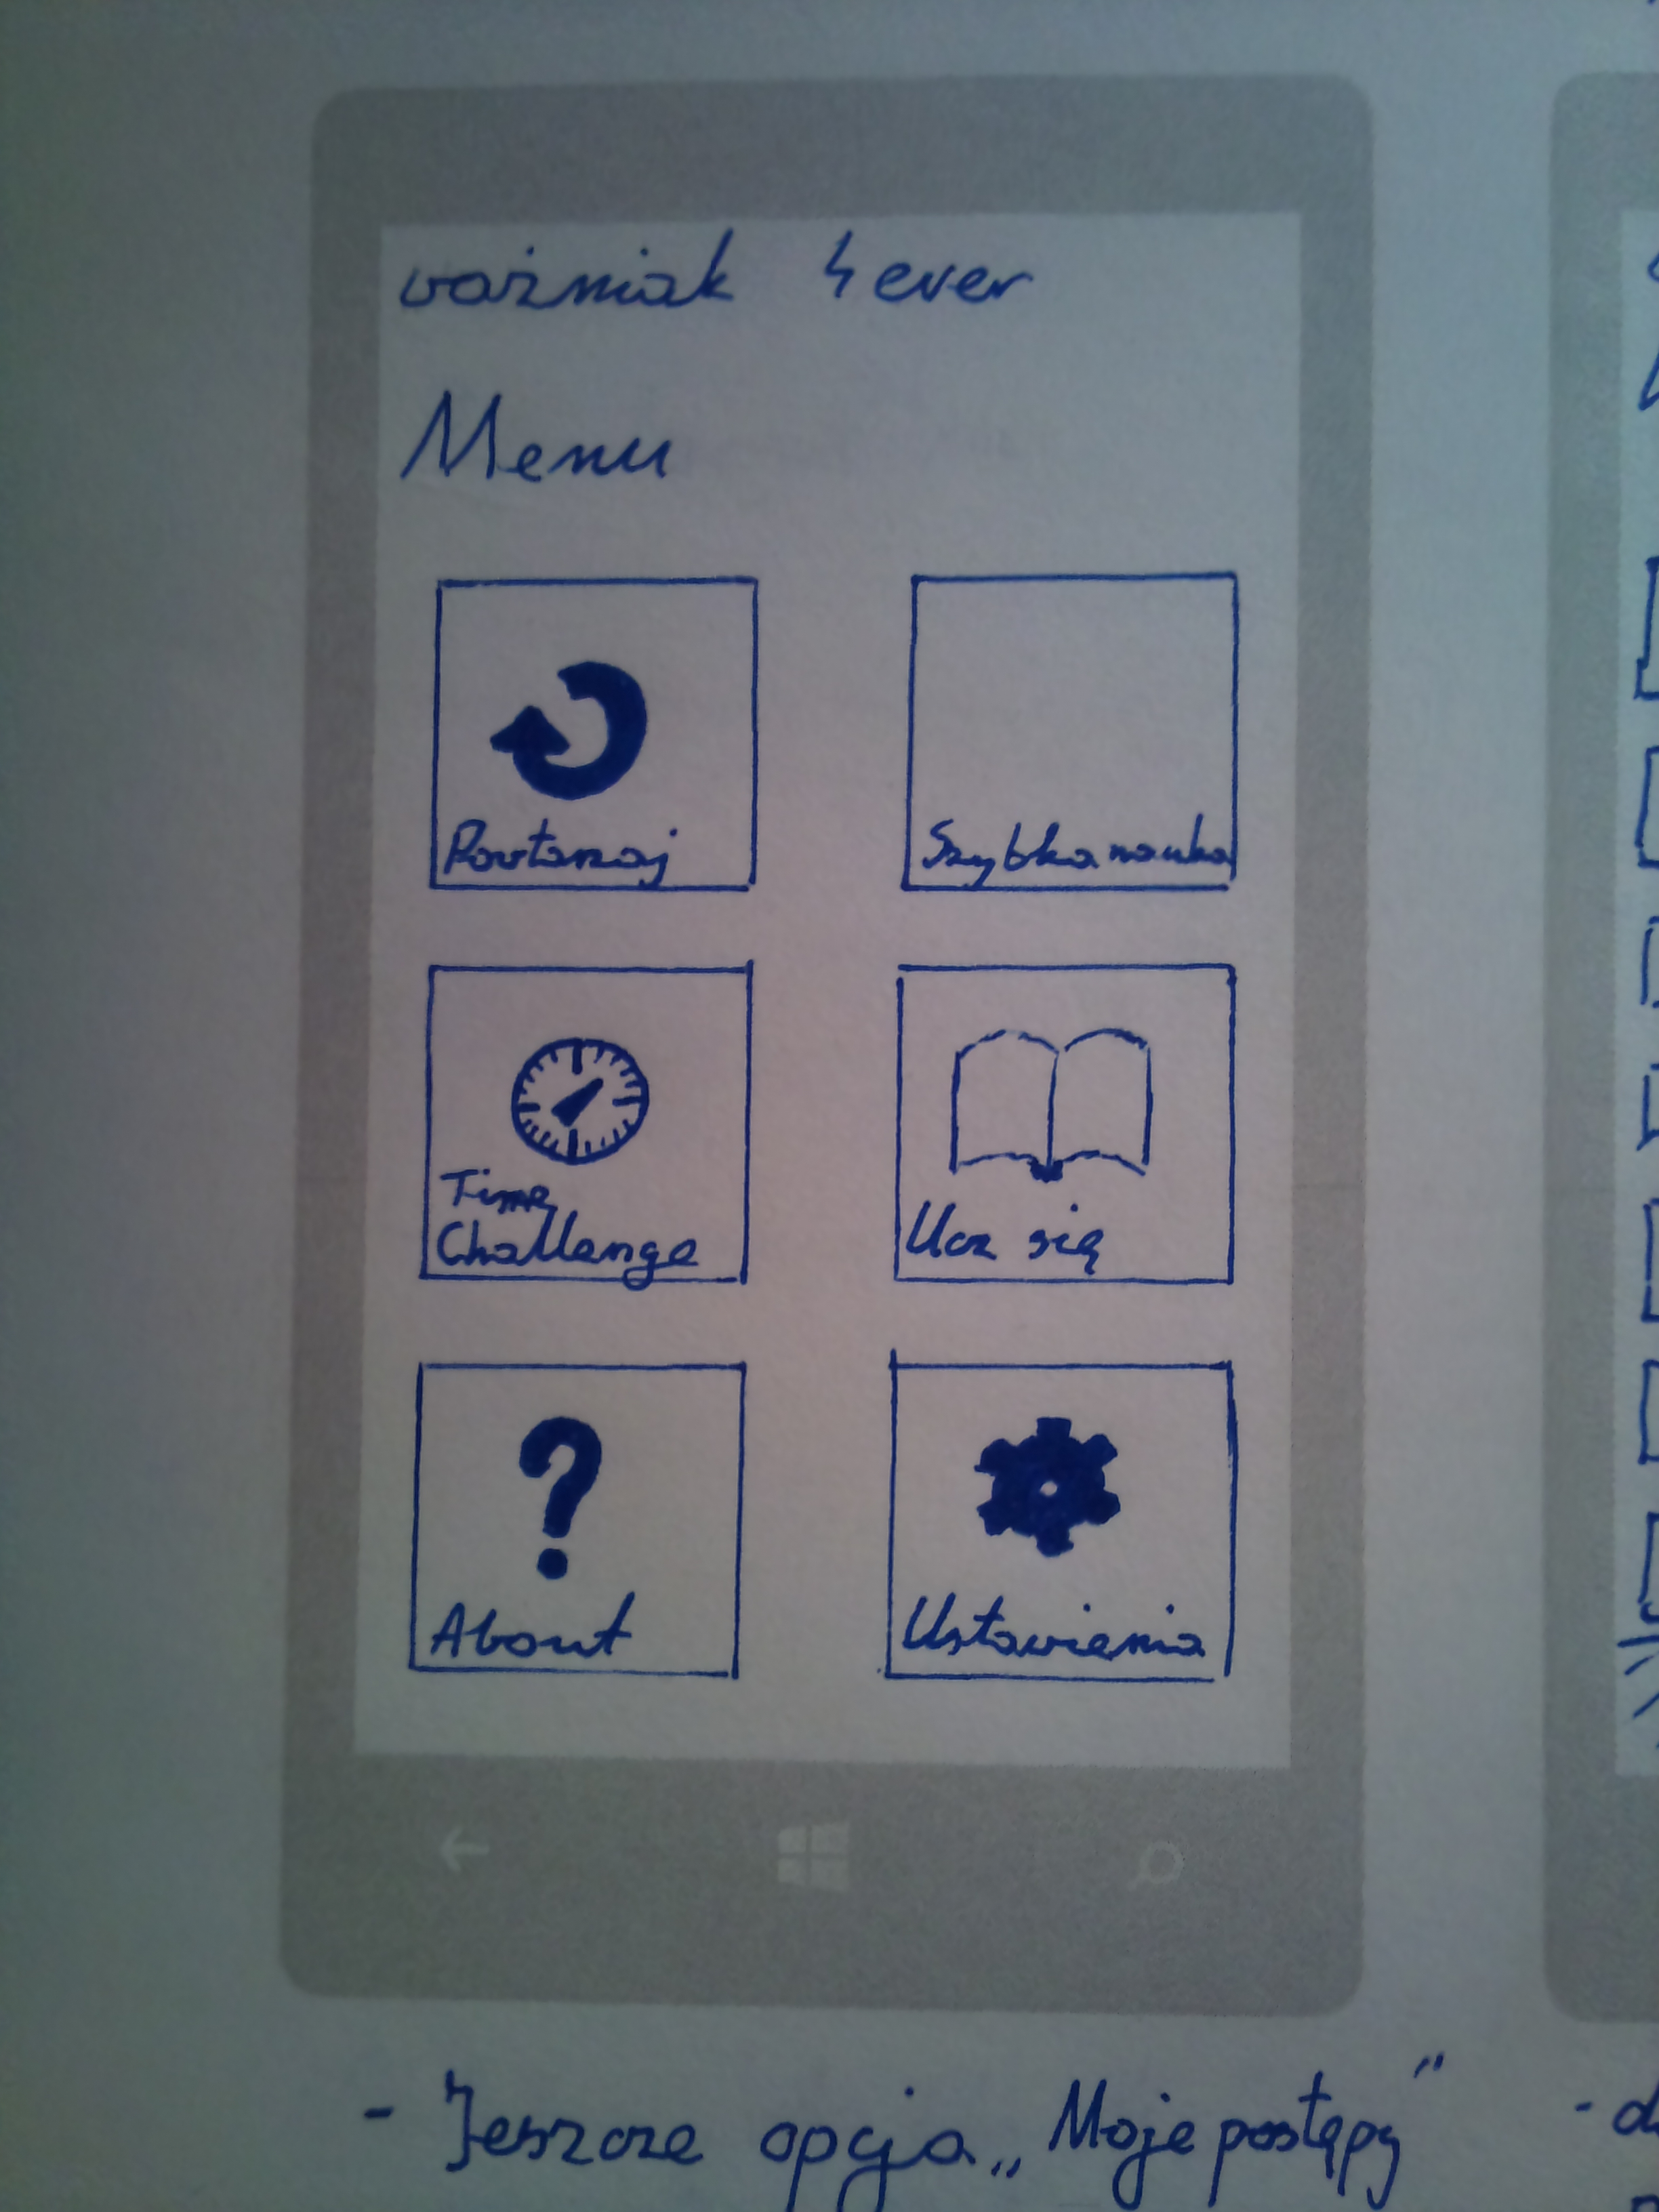 woźniak 4 ever
Menu
Powtarzaj
Szybka nauka
Time
Challenge
Ucz się
About
Ustawienia
- Jeszcze opcja „Moje postępy”
-